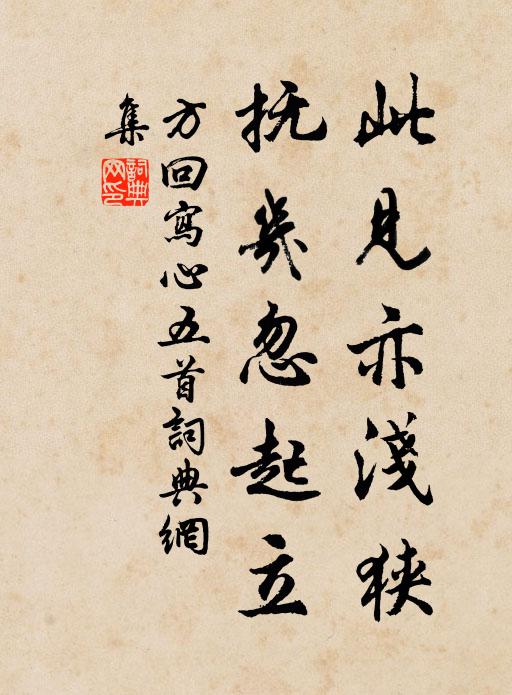 此見亦淺狹
抚几忽起立
方回寫心五首詞典網
集
詞典網印